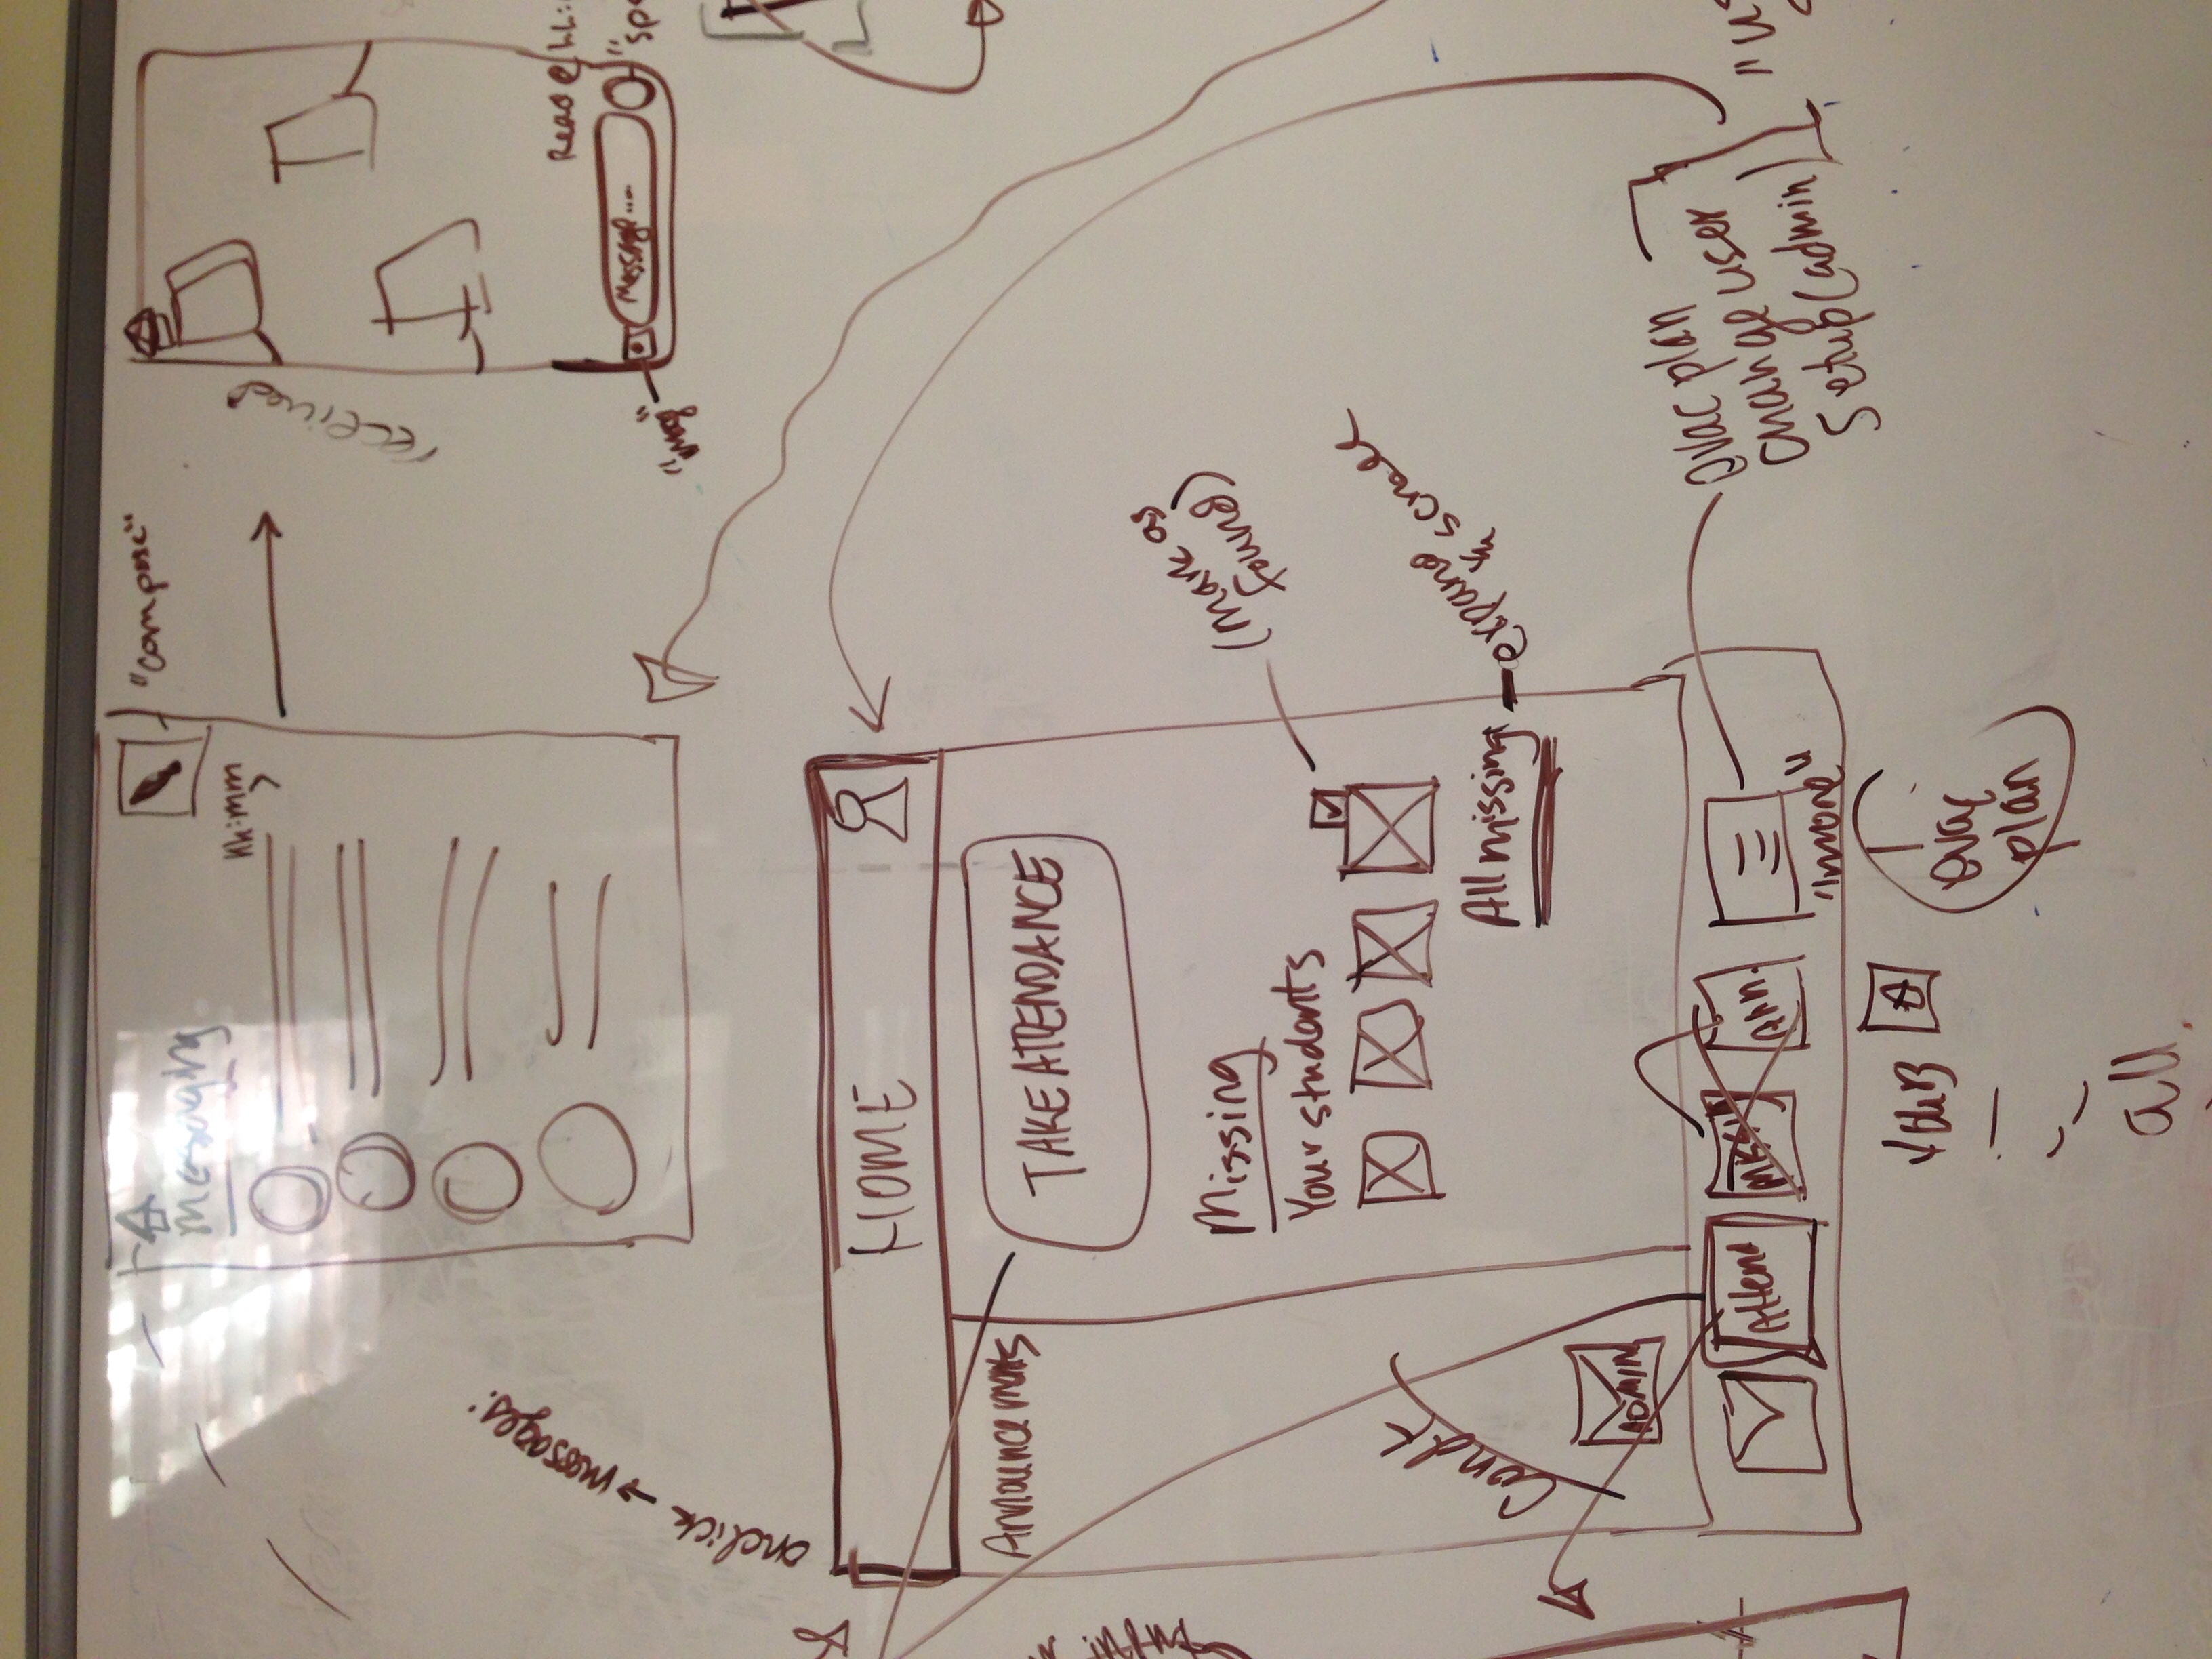 messaging
"compose"
hh:mm
received
Read @ hh:
Message....
"img"
onclick → messages:
HOME
Announcements
TAKE ATTENDANCE
Missing
Your students
(Mark as
found)
All missing:
expand
& scroll
ADMIN
Attend
Ann.
"more"
evac plan
change user
Setup (admin)
evac
plan
all